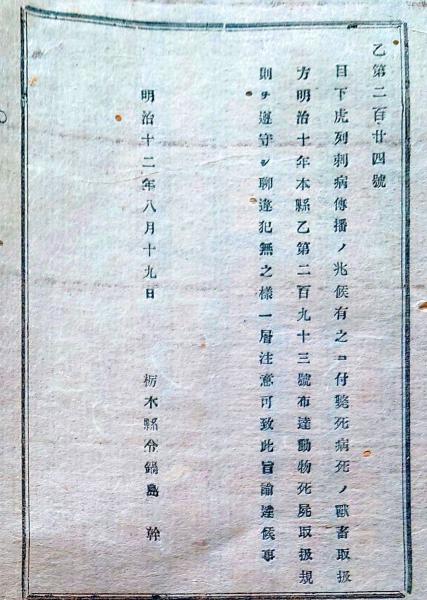 乙第二百廿四號
目下虎列刺病傳播ノ兆候有之ニ付斃死病死ノ獸畜取扱
方明治十年本縣乙第二百九十三號布達動物死屍取扱規
則ヲ遵守シ聊違犯無之樣一層注意可致此旨諭達候事
明治十二年八月十九日
栃木縣令鍋島幹